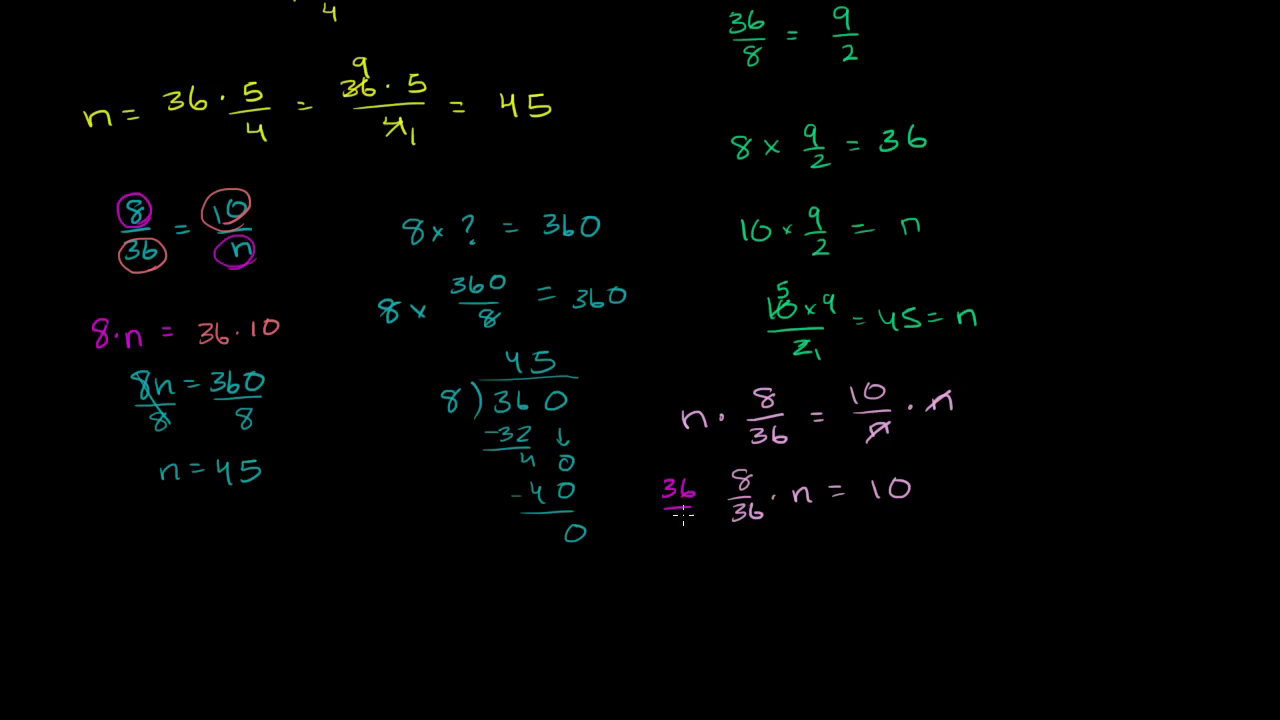 4
n = 36 · 5/4 = 36 · 5/4 = 45
9
1
8/36 = 10/n
8·n = 36·10
8n/8 = 360/8
n = 45
8 × ? = 360
8 × 360/8 = 360
45
8 ) 360
-32 ↓
40
-40
0
36/8 = 9/2
8 × 9/2 = 36
10 × 9/2 = n
5
10 × 9/2 = 45 = n
1
n · 8/36 = 10/n · n
36 8/36 · n = 10